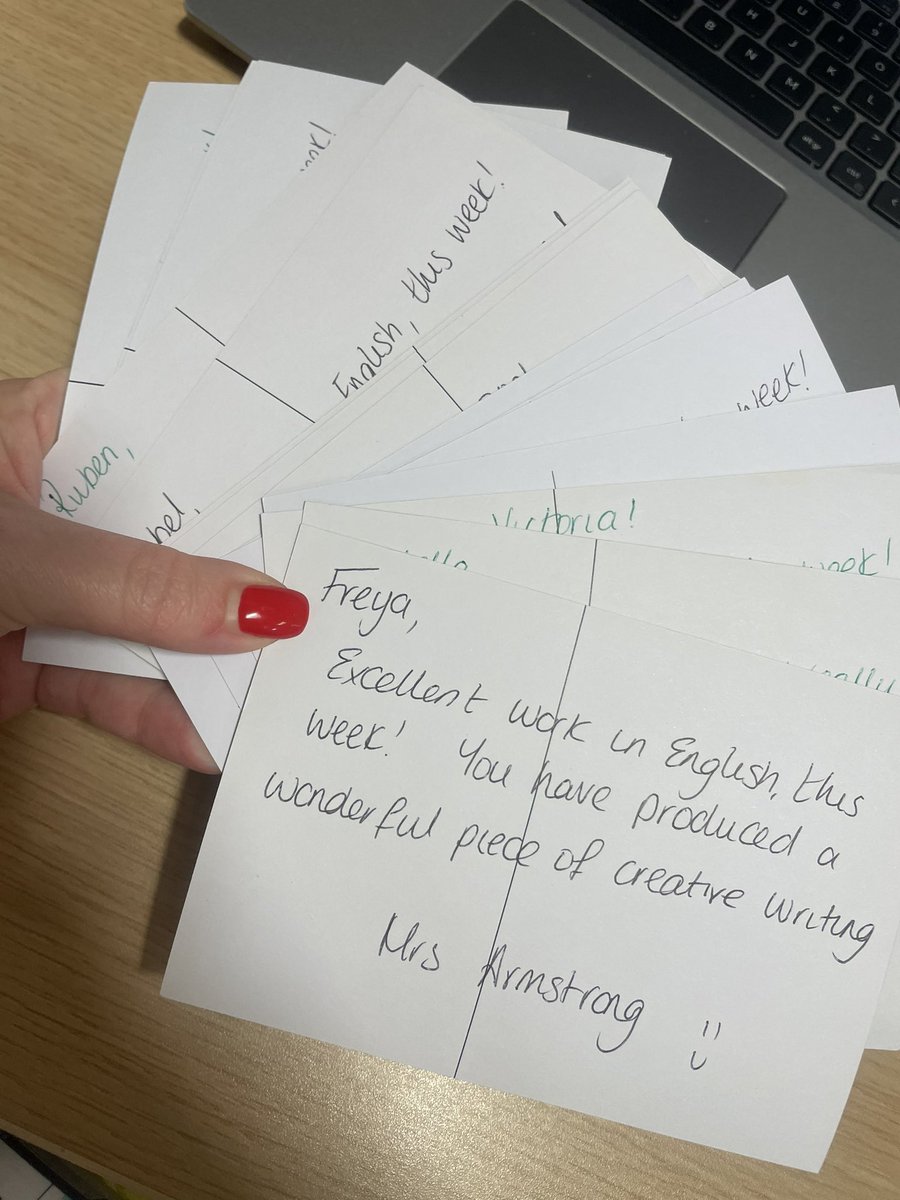 Freya,
Excellent work in English, this
week! You have produced a
wonderful piece of creative writing
Mrs Armstrong
Ruben,
English, this week!
week!
Victoria!
week!